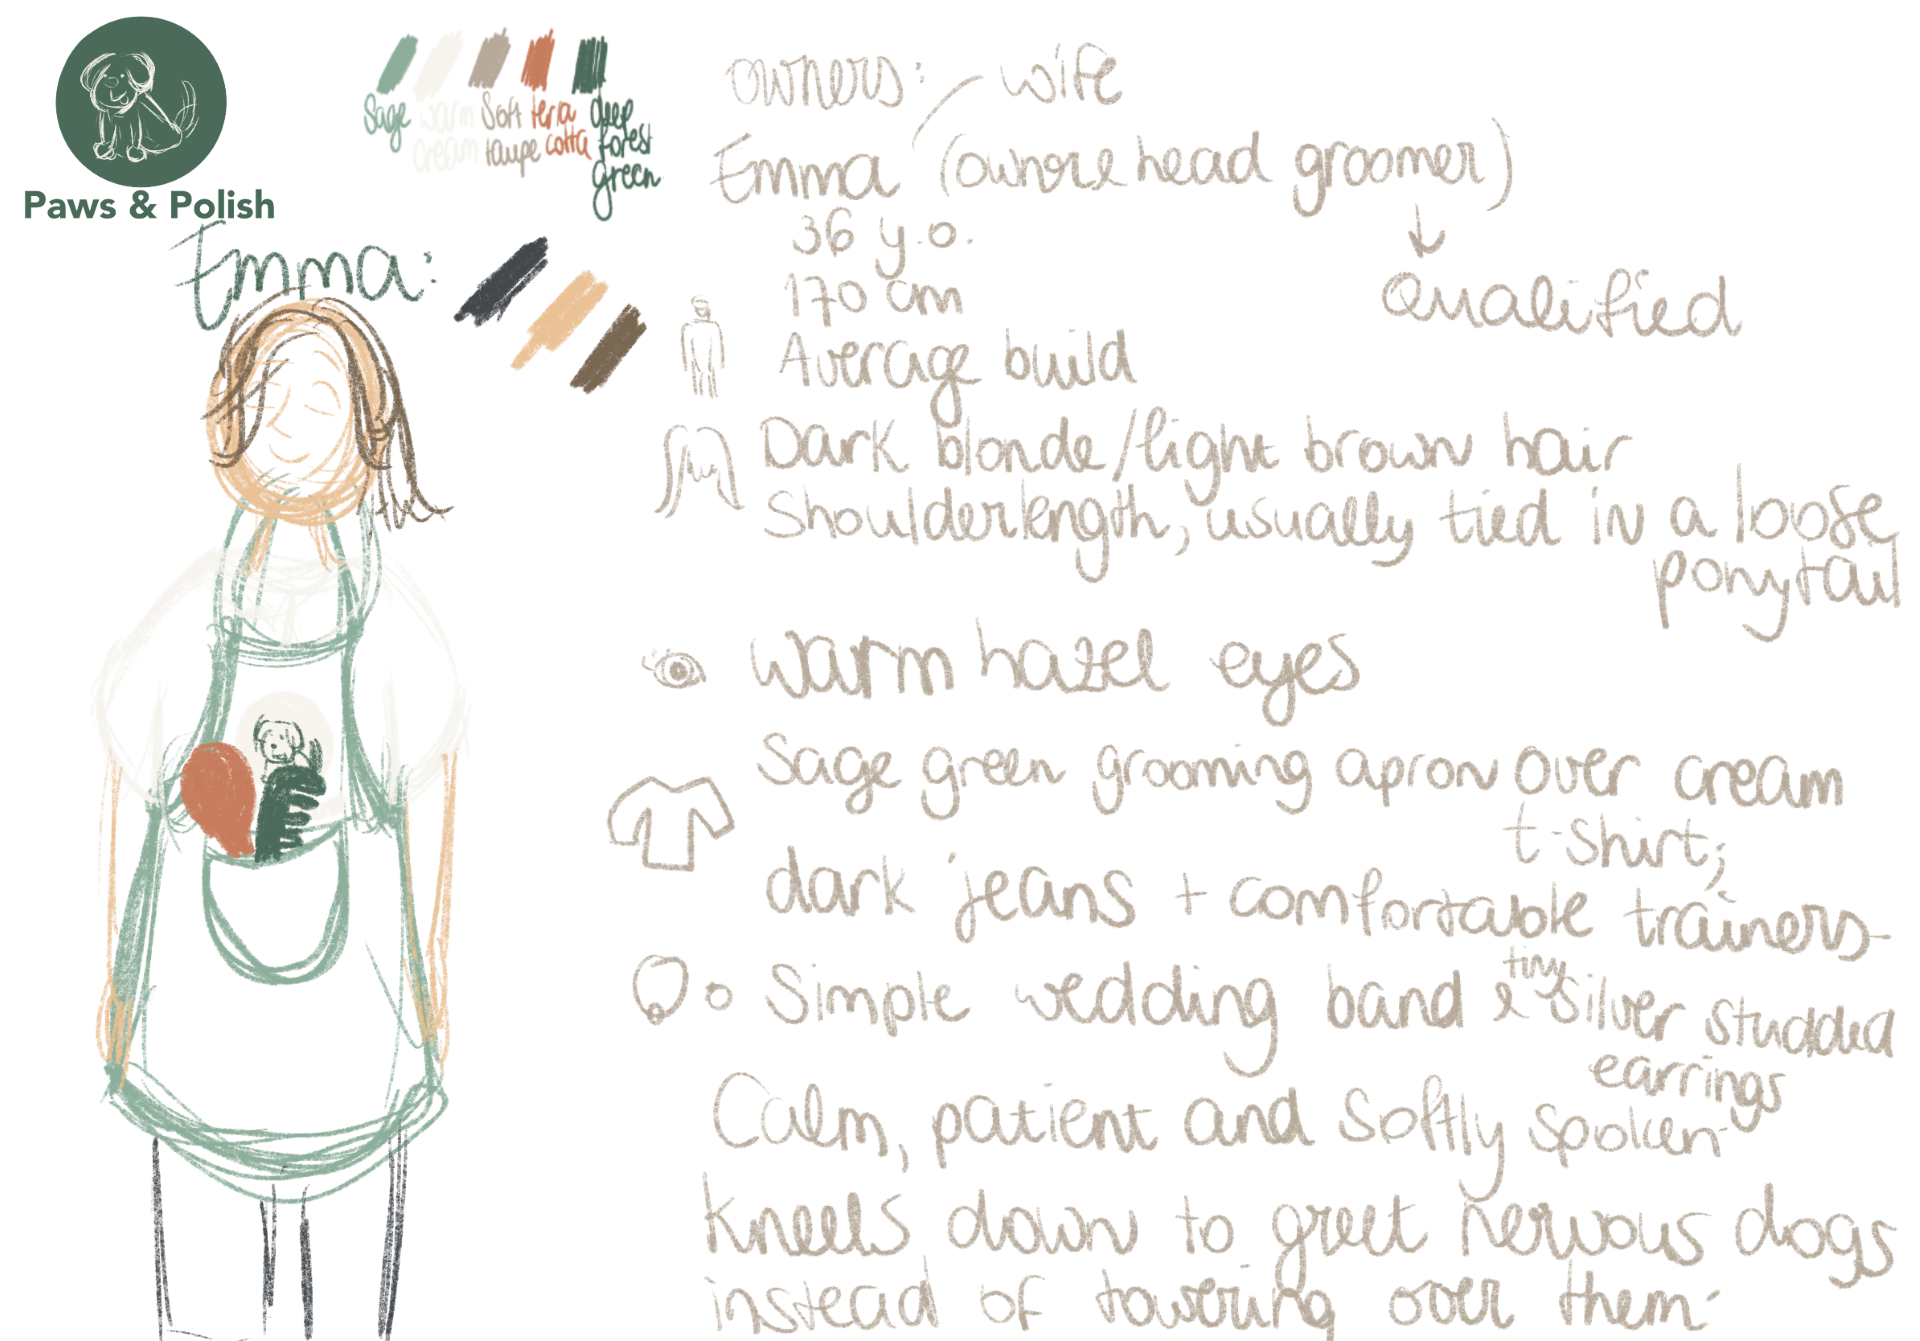 Paws & Polish
Sage
warm cream
Soft taupe
terra cotta
deep forest green
Emma:
owners:
wife
Emma (ownore head groomer)
Qualified
36 y.o.
170 cm
Average build
Dark blonde/light brown hair
Shoulderlength, usually tied in a loose
ponytail
warm hazel eyes
Sage green grooming apron over cream
t-shirt;
dark jeans + comfortable trainers
Simple wedding band & tiny silver studded
earrings
Calm, patient and softly spoken
kneels down to greet nervous dogs
instead of towering over them.